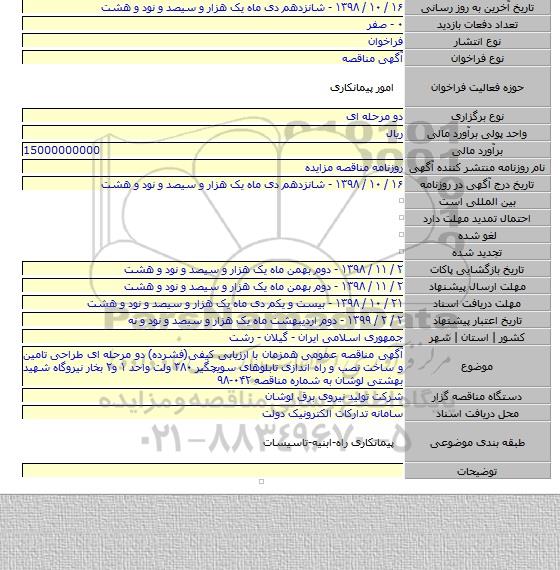 تاریخ آخرین به روز رسانی ۱۶ / ۱۰ / ۱۳۹۸ - شانزدهم دی ماه یک هزار و سیصد و نود و هشت
تعداد دفعات بازدید ۰ - صفر
نوع انتشار فراخوان
نوع فراخوان آگهی مناقصه
حوزه فعالیت فراخوان امور پیمانکاری
نوع برگزاری دو مرحله ای
واحد پولی برآورد مالی ریال
برآورد مالی 15000000000
نام روزنامه منتشر کننده آگهی روزنامه مناقصه مزایده
تاریخ درج آگهی در روزنامه ۱۶ / ۱۰ / ۱۳۹۸ - شانزدهم دی ماه یک هزار و سیصد و نود و هشت
بین المللی است
احتمال تمدید مهلت دارد
لغو شده
تجدید شده
تاریخ بازگشایی پاکات ۲ / ۱۱ / ۱۳۹۸ - دوم بهمن ماه یک هزار و سیصد و نود و هشت
مهلت ارسال پیشنهاد ۲ / ۱۱ / ۱۳۹۸ - دوم بهمن ماه یک هزار و سیصد و نود و هشت
مهلت دریافت اسناد ۲۱ / ۱۰ / ۱۳۹۸ - بیست و یکم دی ماه یک هزار و سیصد و نود و هشت
تاریخ اعتبار پیشنهاد ۲ / ۲ / ۱۳۹۹ - دوم اردیبهشت ماه یک هزار و سیصد و نود و نه
کشور | استان | شهر جمهوری اسلامی ایران - گیلان - رشت
موضوع آگهی مناقصه عمومی همزمان با ارزیابی کیفی(فشرده) دو مرحله ای طراحی تامین
و ساخت نصب و راه اندازی تابلوهای سویچگیر ۳۸۰ ولت واحد ۱ و۲ بخار نیروگاه شهید
بهشتی لوشان به شماره مناقصه ۰۴۲-۹۸
دستگاه مناقصه گزار شرکت تولید نیروی برق لوشان
محل دریافت اسناد سامانه تدارکات الکترونیک دولت
طبقه بندی موضوعی پیمانکاری راه-ابنیه-تاسیسات
توضیحات
۰۲۱-۸۸۳۴۹۶۷۰-۵